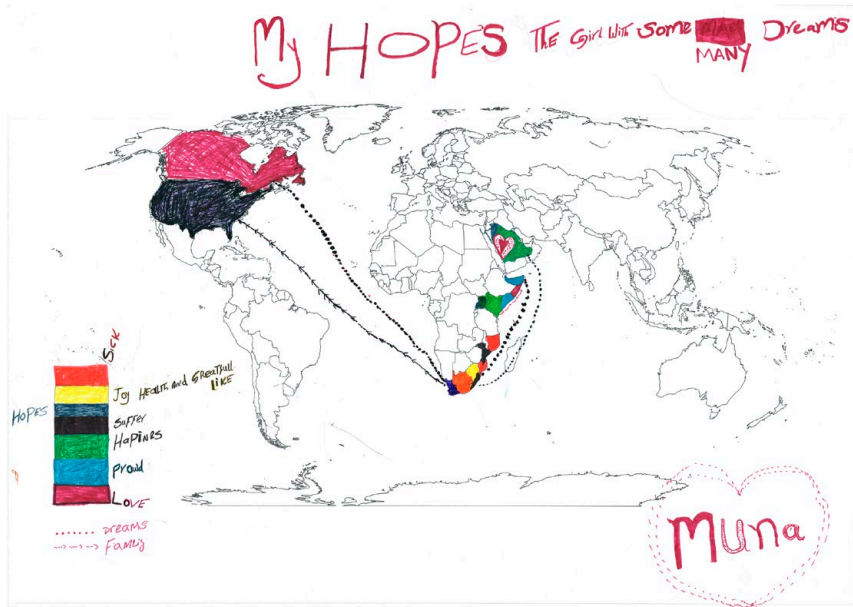 My HOPES The Girl With Some Dreams
MANY
SICK
Joy HEALTH and GREATFULL
LIKE
HOPES
SUFFER
HaPINES
Prowd
LOVE
Dreams
Family
Muna